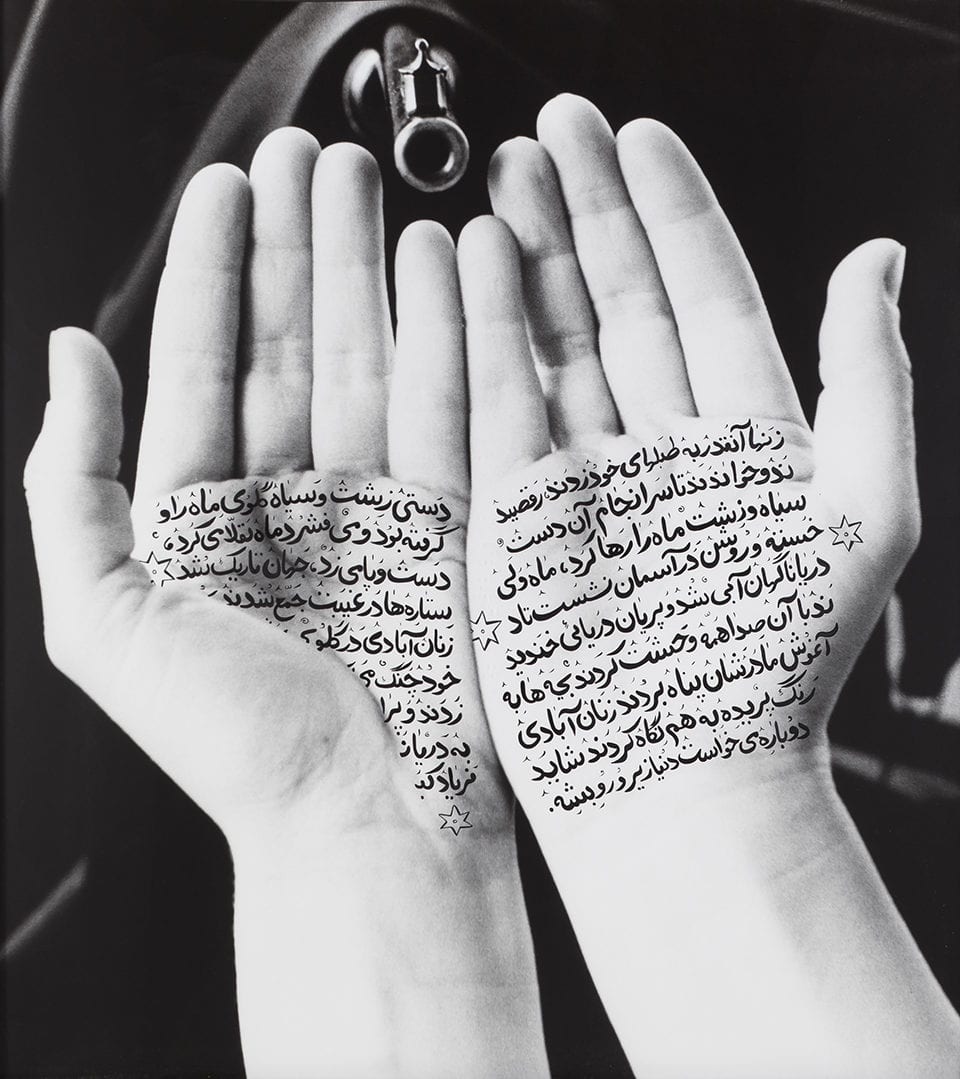 دستی زشت و سیاه گلوی ماه را و
گرفته بود و می فشرد ماه تقلّا می کرد،
دست و پا می زد، جهان تاریک شد
ستاره ها در غیبت جمع شدند
زنان آبادی در گلوی
خود چنگ
زدند و
به دریا
فریاد
زنها آنقدر به طبلهای خود زدند، رقصید
ند و خواندند تا سرانجام آن دست
سیاه و زشت ماه را رها کرد، ماه ولی
خسته و روشن در آسمان نشست تا د
دریا ناگهان آبی شد و پریان دریائی خندید
ند با آن صدا همه وحشت کردند بچه ها به
آغوش مادرشان پناه بردند زنان آبادی
رنگ پریده به هم نگاه کردند شاید
دوباره می خواست دنیا زیر و رو بشه.